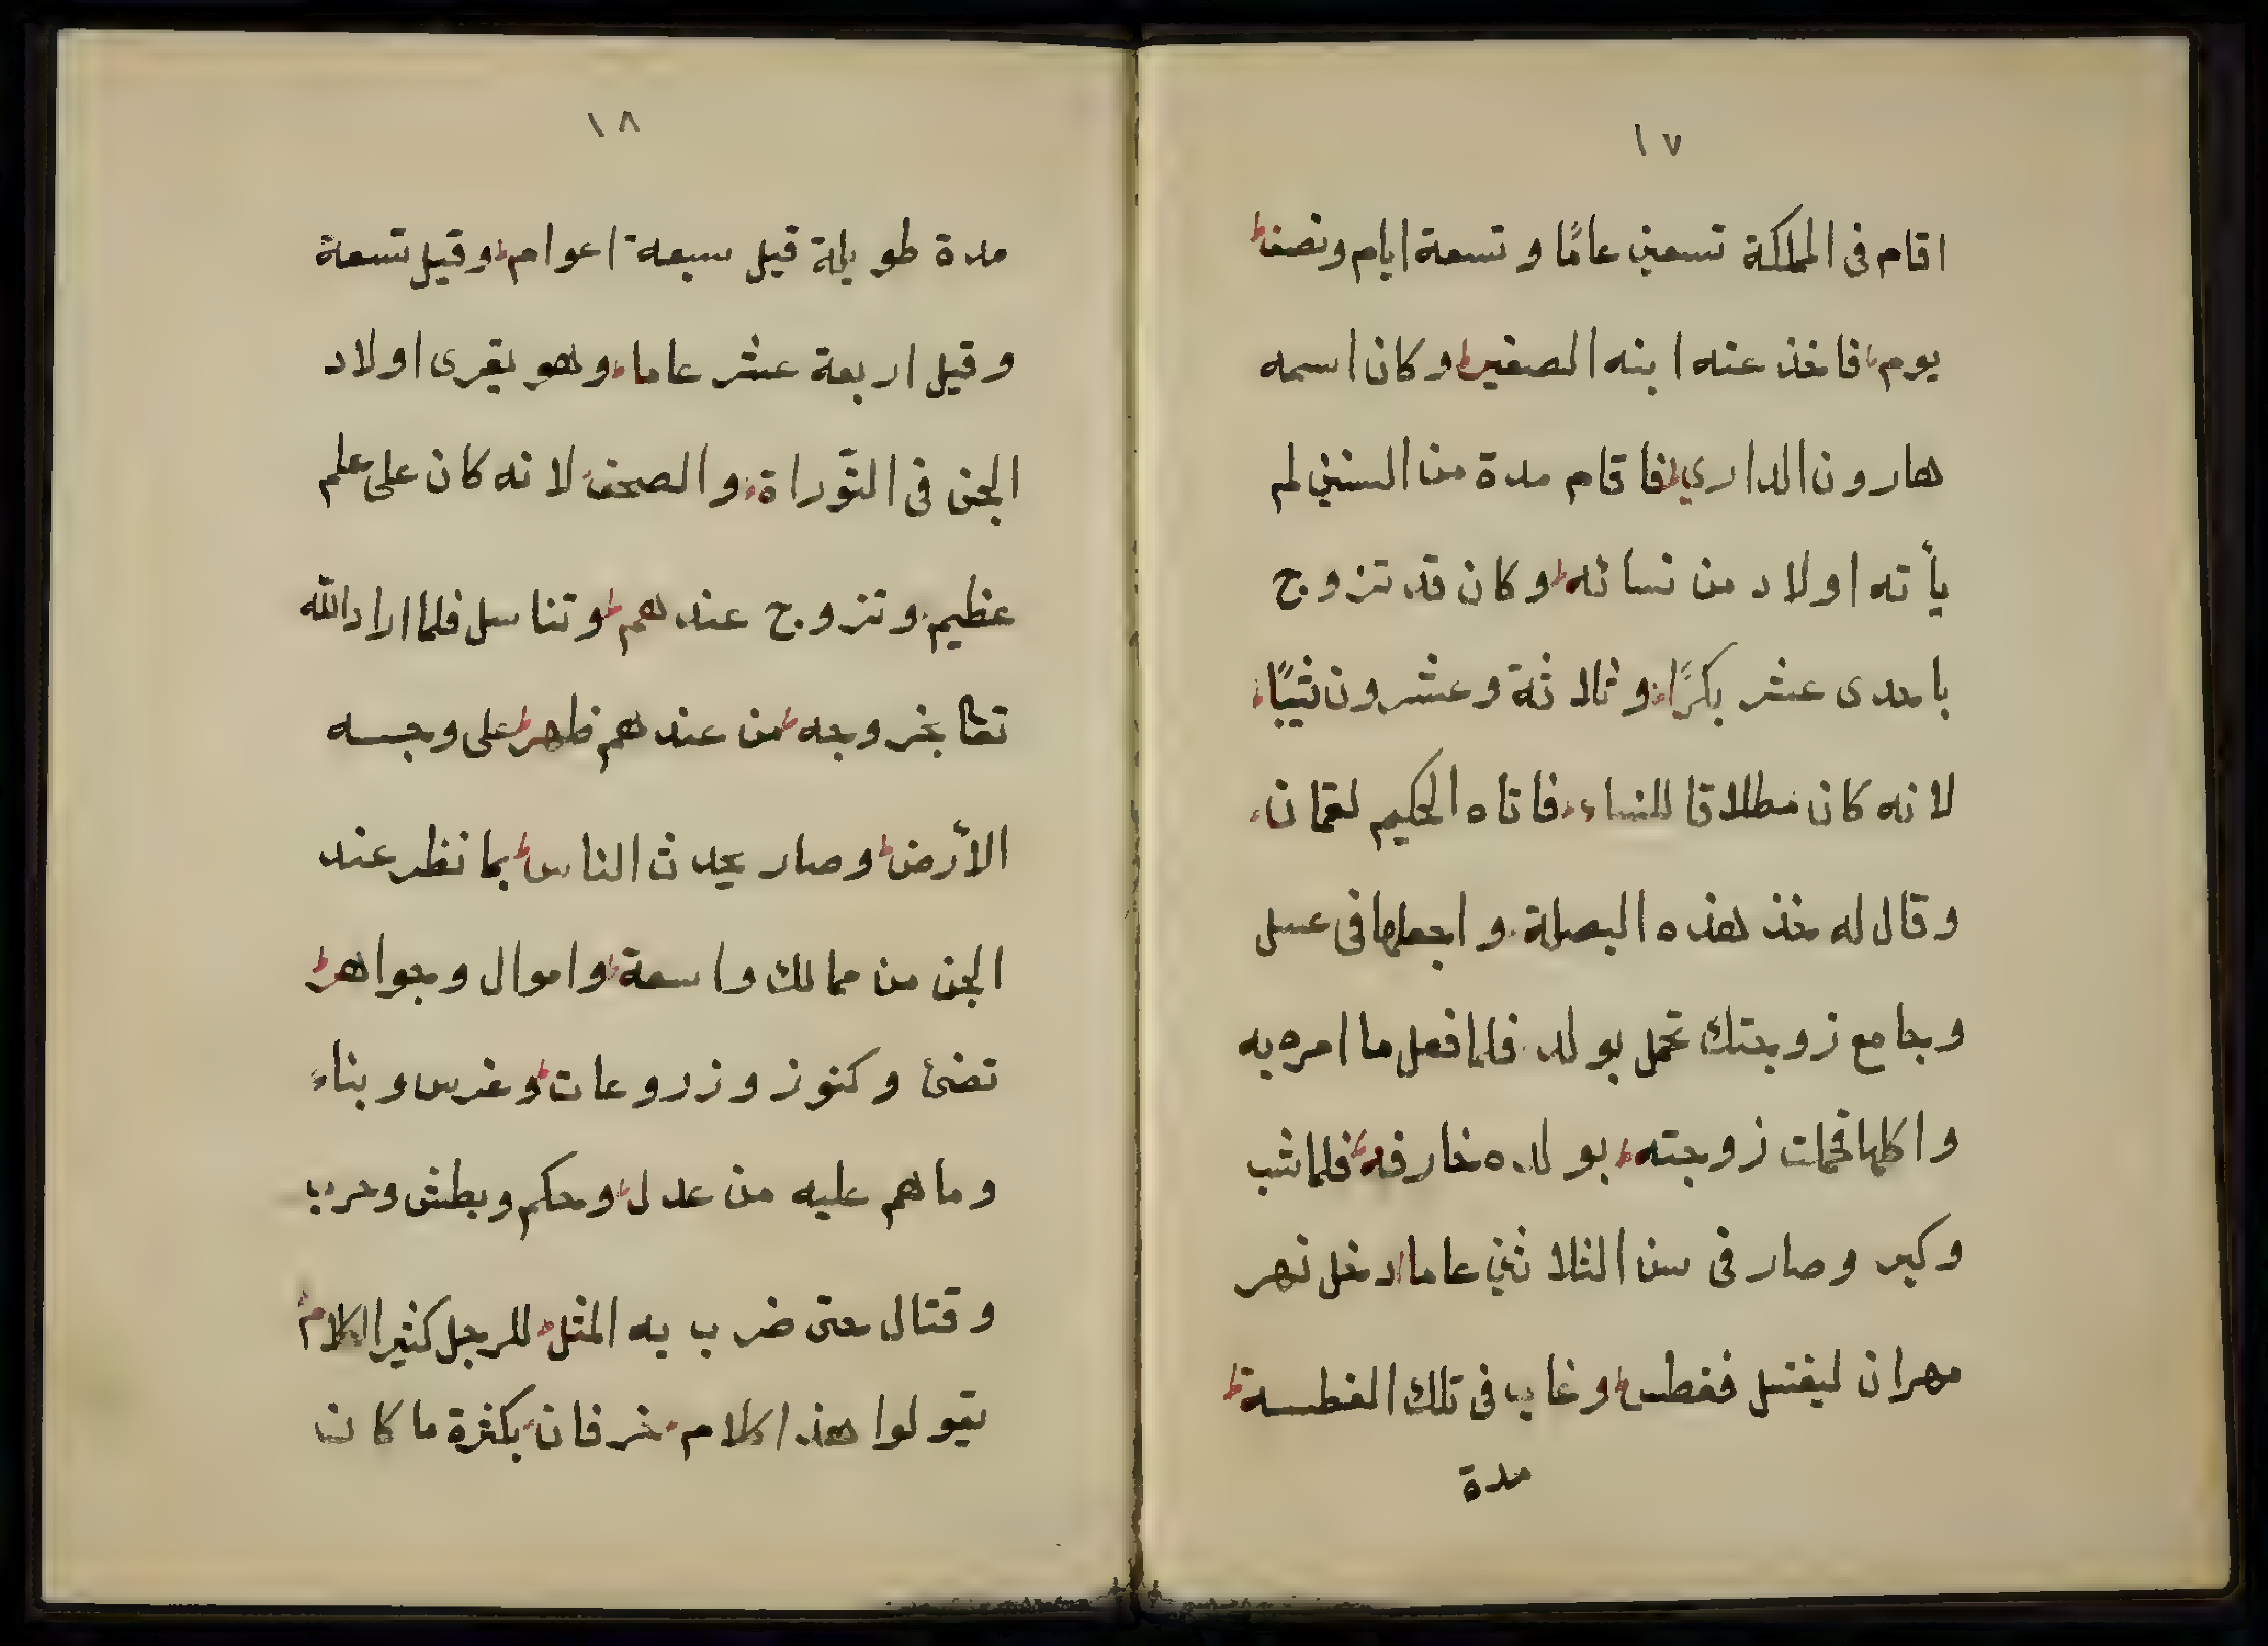 ١٧
اقام فى المملكة تسعين عامًا و تسعة ايام ونصف
يوم فاخذ عنه ابنه الصغير وكان اسمه
هارون الدارى فاقام مدة من السنين لم
يأته اولاد من نسائه وكان قد تزوج
باحدى عشر بكرًا وثلاثة وعشرون ثيبًا
لانه كان مطلاقا للنساء فاتاه الحكيم لقمان
وقال له خذ هذه البصلة واجعلها فى عسل
وجامع زوجتك تحمل بولد فلما فعل ما امره به
واكلها فحملت زوجته بولده خارفه فلما شب
وكبر وصار فى سن الثلاثين عاما دخل نهر
مهران ليغتسل فغطس وغاب فى تلك الغطسة
مدة
١٨
مدة طويلة قيل سبعة اعوام وقيل تسعة
وقيل اربعة عشر عاما وهو يقرى اولاد
الجن فى التوّراة والصحف لانه كان على علم
عظيم وتزوج عندهم وتناسل فلما اراد الله
تعا بخروجه من عندهم ظهر على وجسه
الأرض وصار يحدث الناس بما نظر عند
الجن من ممالك واسعة واموال وجواهر
تضئ وكنوز وزروعات وغرس وبناء
وما هم عليه من عدل وحكم وبطش وحرب
وقتال حتى ضرب به المثل للرجل كثير الكلام
يقولوا هذا كلام خرفان بكثرة ما كان